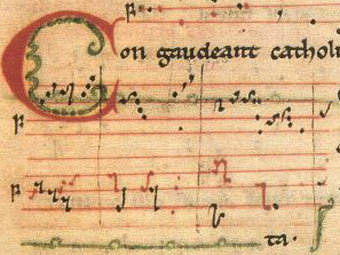 Con gaudeant catholi
ta.